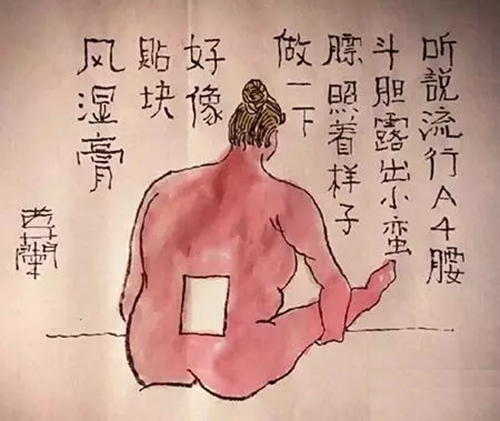 听説流行A4腰
斗胆露出小蛮
膘照着样子
做一下
好像
貼块
风湿膏